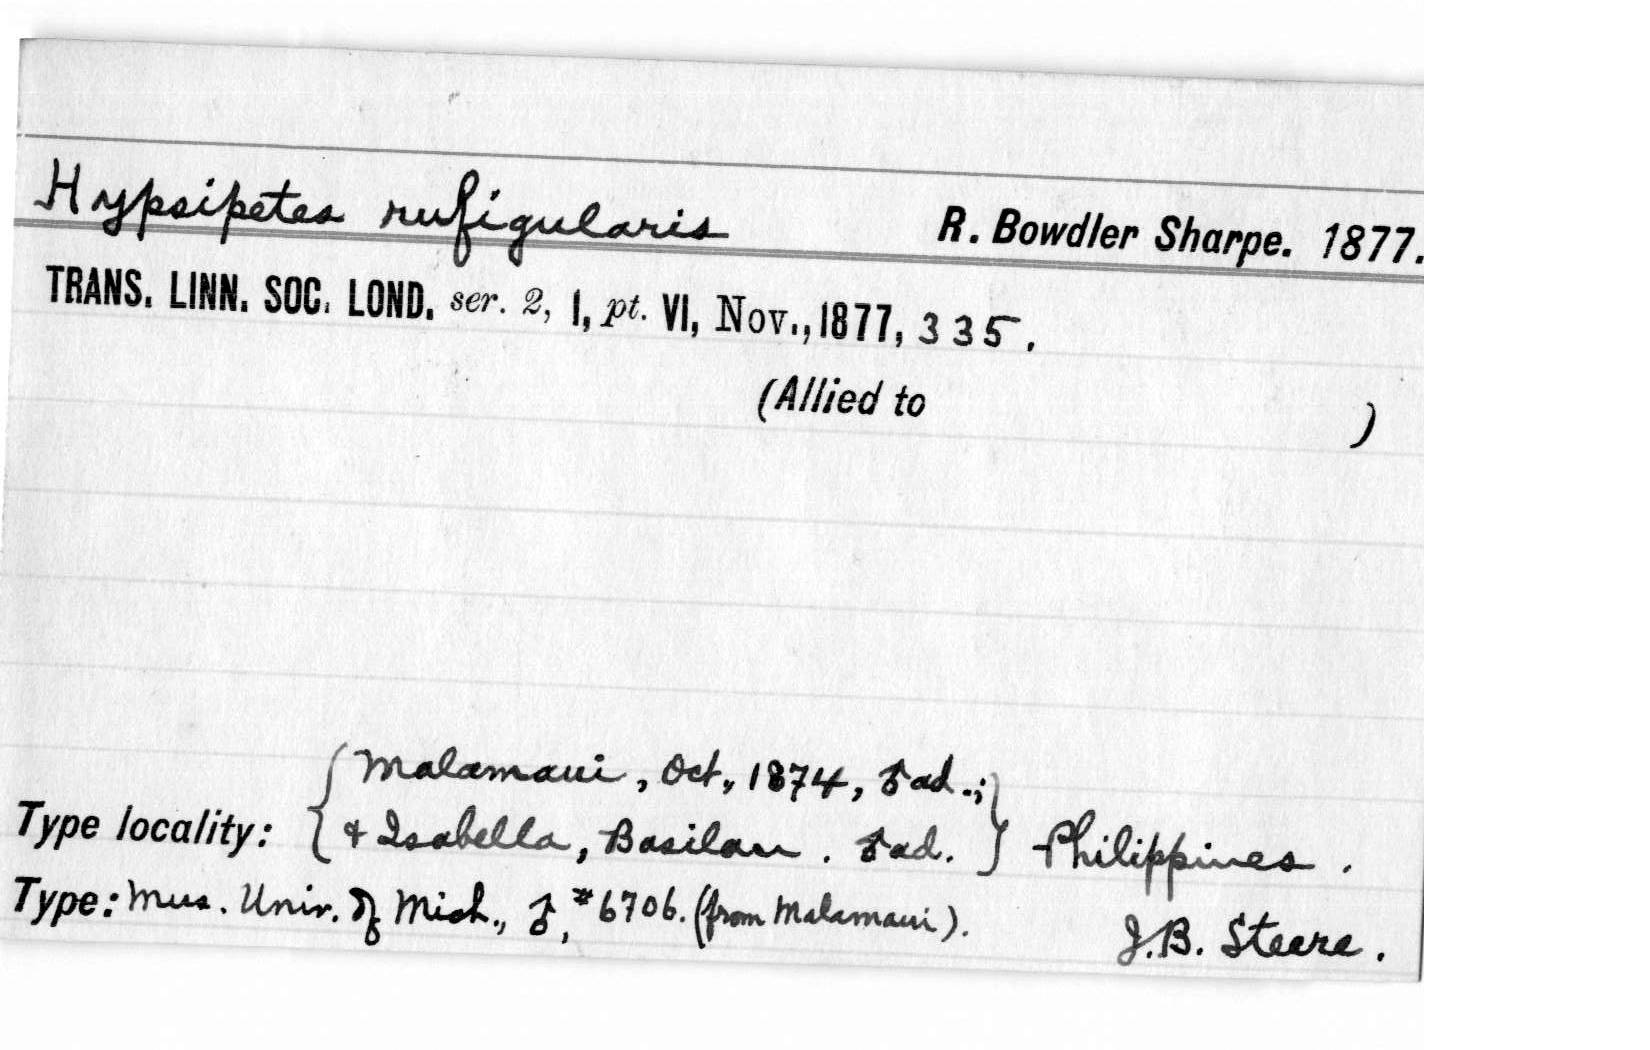 Hypsipetes rufigularis R. Bowdler Sharpe. 1877.
TRANS. LINN. SOC. LOND. ser. 2, I, pt. VI, Nov., 1877, 335.
(Allied to )
{ Malamaui, Oct., 1874, ♂ ad.; }
Type locality: { & Isabella, Basilan. ♂ ad. } Philippines.
Type: Mus. Univ. of Mich., ♂, #6706. (from Malamaui).
J.B. Steere.